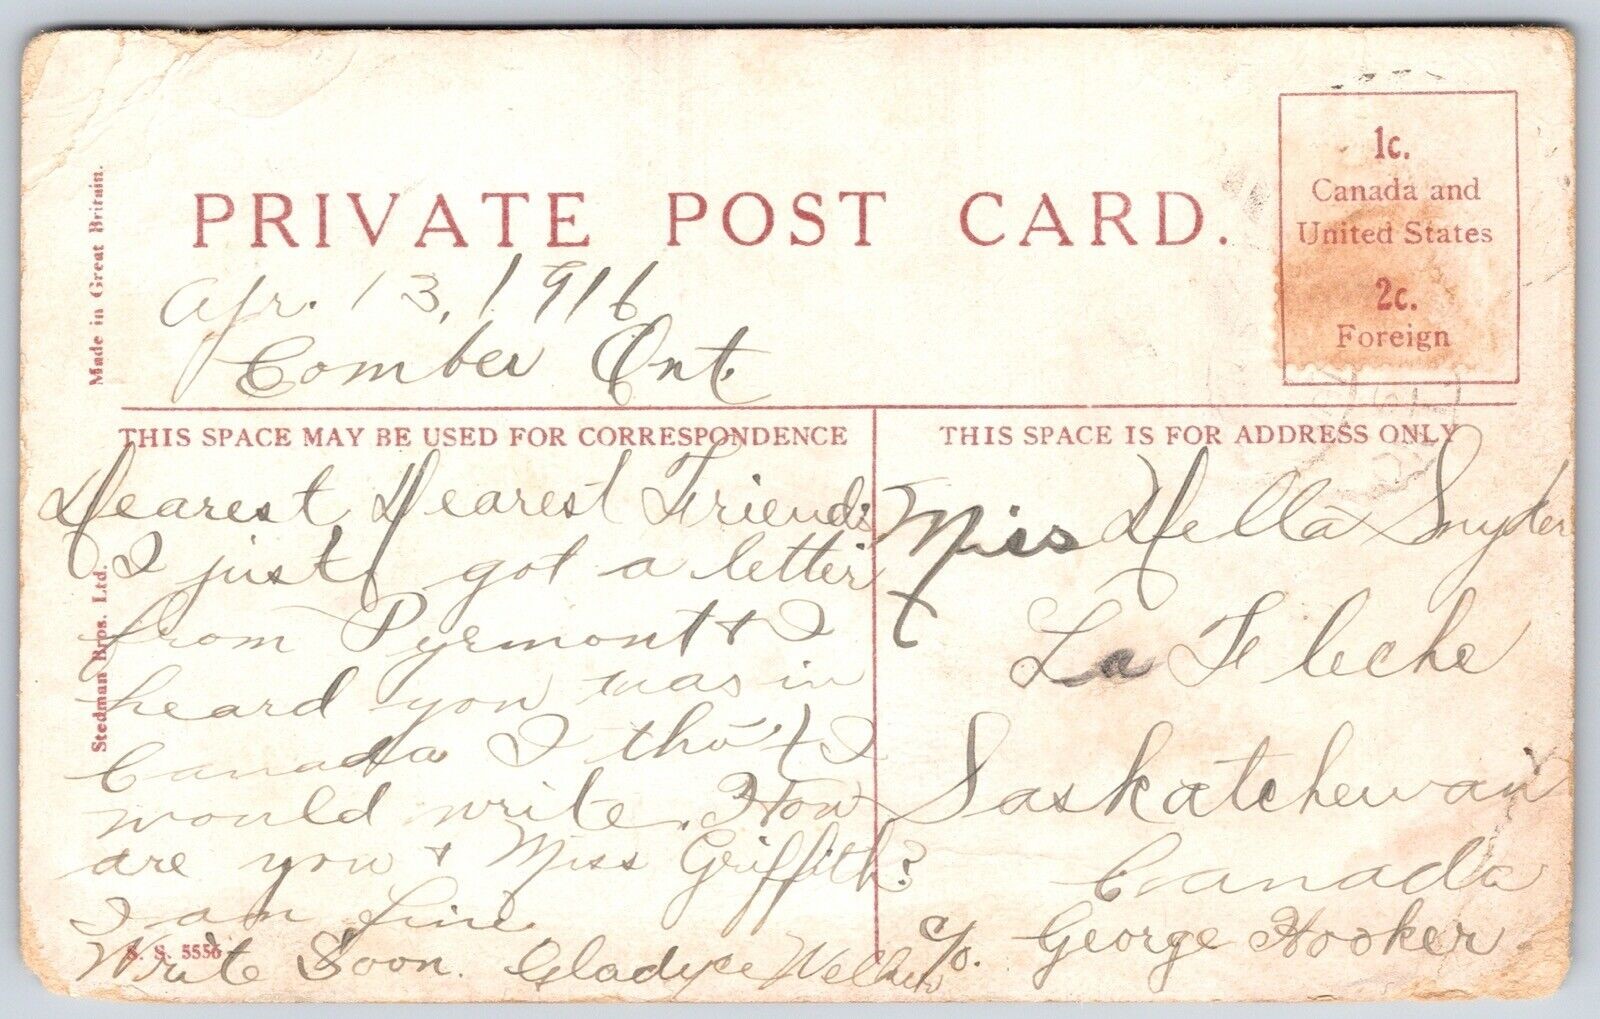 PRIVATE POST CARD.
1c.
Canada and
United States
2c.
Foreign
Made in Great Britain.
Stedman Bros. Ltd.
Apr. 13, 1916
Comber Ont.
THIS SPACE MAY BE USED FOR CORRESPONDENCE
Dearest Dearest Friend:
I just got a letter
from Pyrmont & I
heard you was in
Canada I tho't I
would write. How
are you & Miss Griffith?
I am fine
Write Soon. Gladyce
S. S. 5556
THIS SPACE IS FOR ADDRESS ONLY
Miss Della Snyder
La Fleche
Saskatchewan
Canada
c/o. George Hooker.